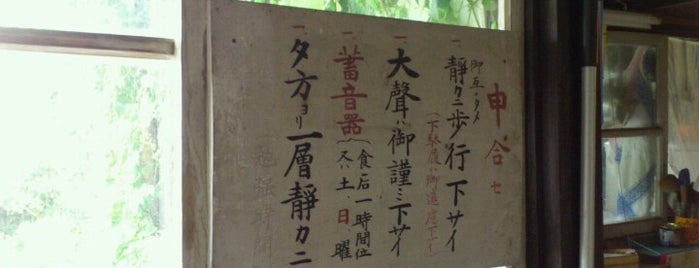 申合セ
一、御互ノタメ
静カニ歩行下サイ
(下駄履ハ御遠慮下サイ)
一、大聲ハ御謹ミ下サイ
一、蓄音器ハ(食后一時間位
又ハ土、日曜
一、夕方ヨリ一層静カニ